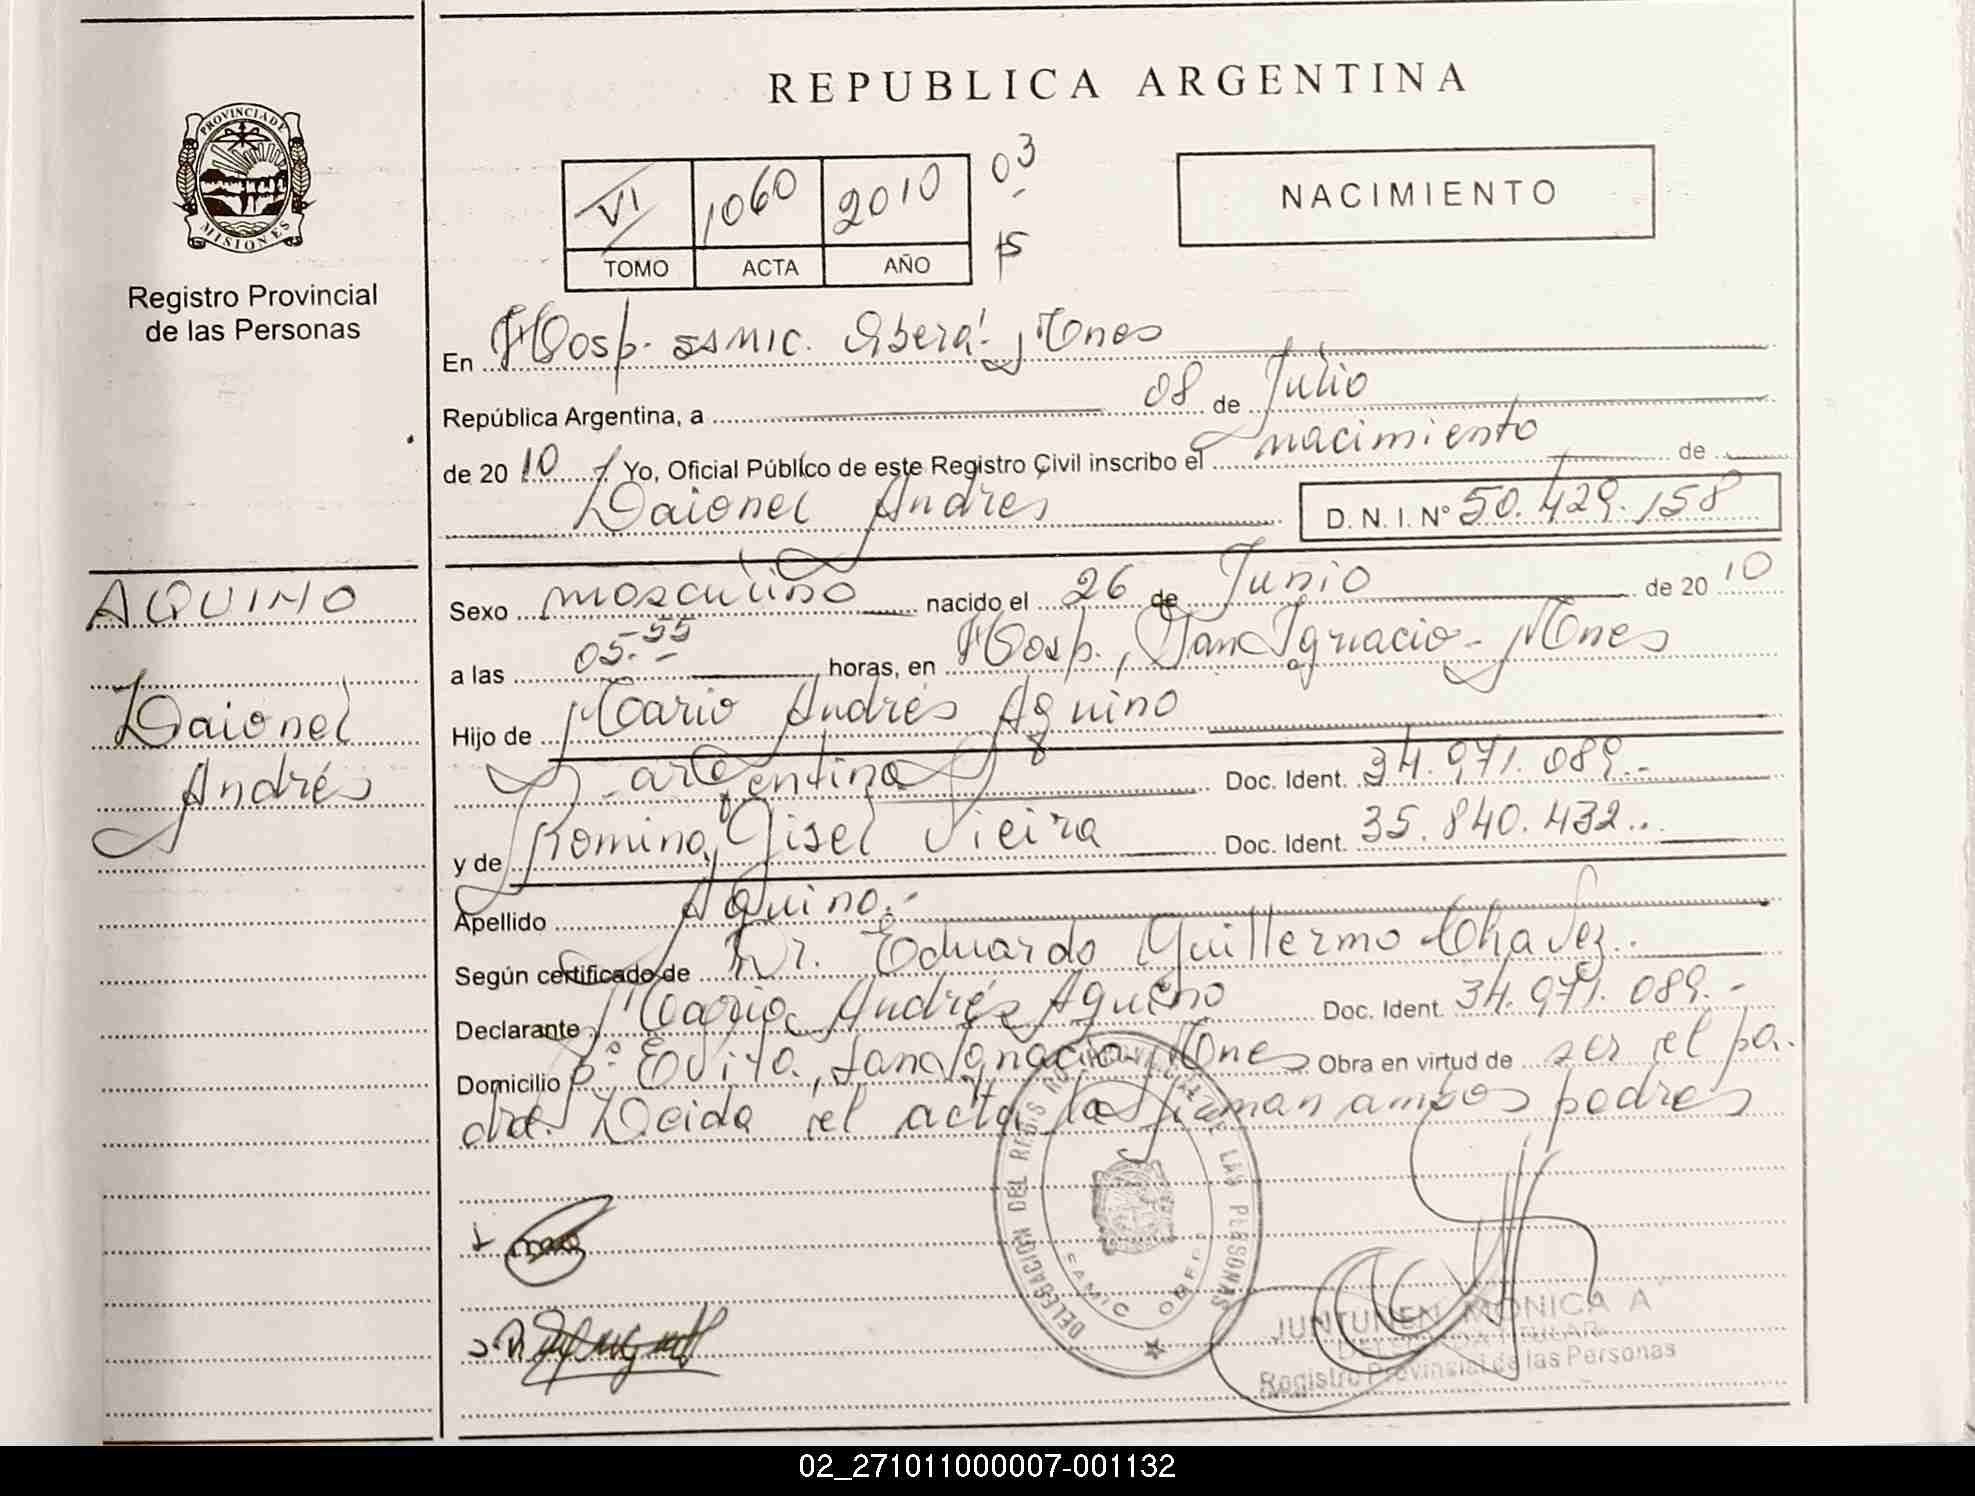 REPUBLICA ARGENTINA
PROVINCIA DE
MISIONES
Registro Provincial
de las Personas
VI 1060 2010 03
TOMO ACTA AÑO 15
NACIMIENTO
En Hosp. SAMIC. Oberá - Mnes
República Argentina, a 08 de Julio
de 2010 Yo, Oficial Público de este Registro Civil inscribo el nacimiento de
Daionel Andrés D. N. I. Nº 50.429.158
AQUINO
Daionel
Andrés
Sexo masculino nacido el 26 de Junio de 2010
a las 05-55 horas, en Hosp., San Ignacio - Mnes
Hijo de Mario Andrés Aquino
argentina Doc. Ident. 34.971.089.-
y de Romina Gisel Vieira Doc. Ident. 35.840.432..
Apellido Aquino.-
Según certificado de Dr. Eduardo Guillermo Chavez..
Declarante Mario Andrés Aquino Doc. Ident. 34.971.089.-
Domicilio Bº Evita, San Ignacio Mnes Obra en virtud de ser el pa-
dre. Leida el acta la firman ambos padres
DELEGACION DEL REGISTRO PROVINCIAL DE LAS PERSONAS
SAMIC OBERA
JUNTUNEN MONICA A
DELEGADA TITULAR
Registro Provincial de las Personas
02_271011000007-001132